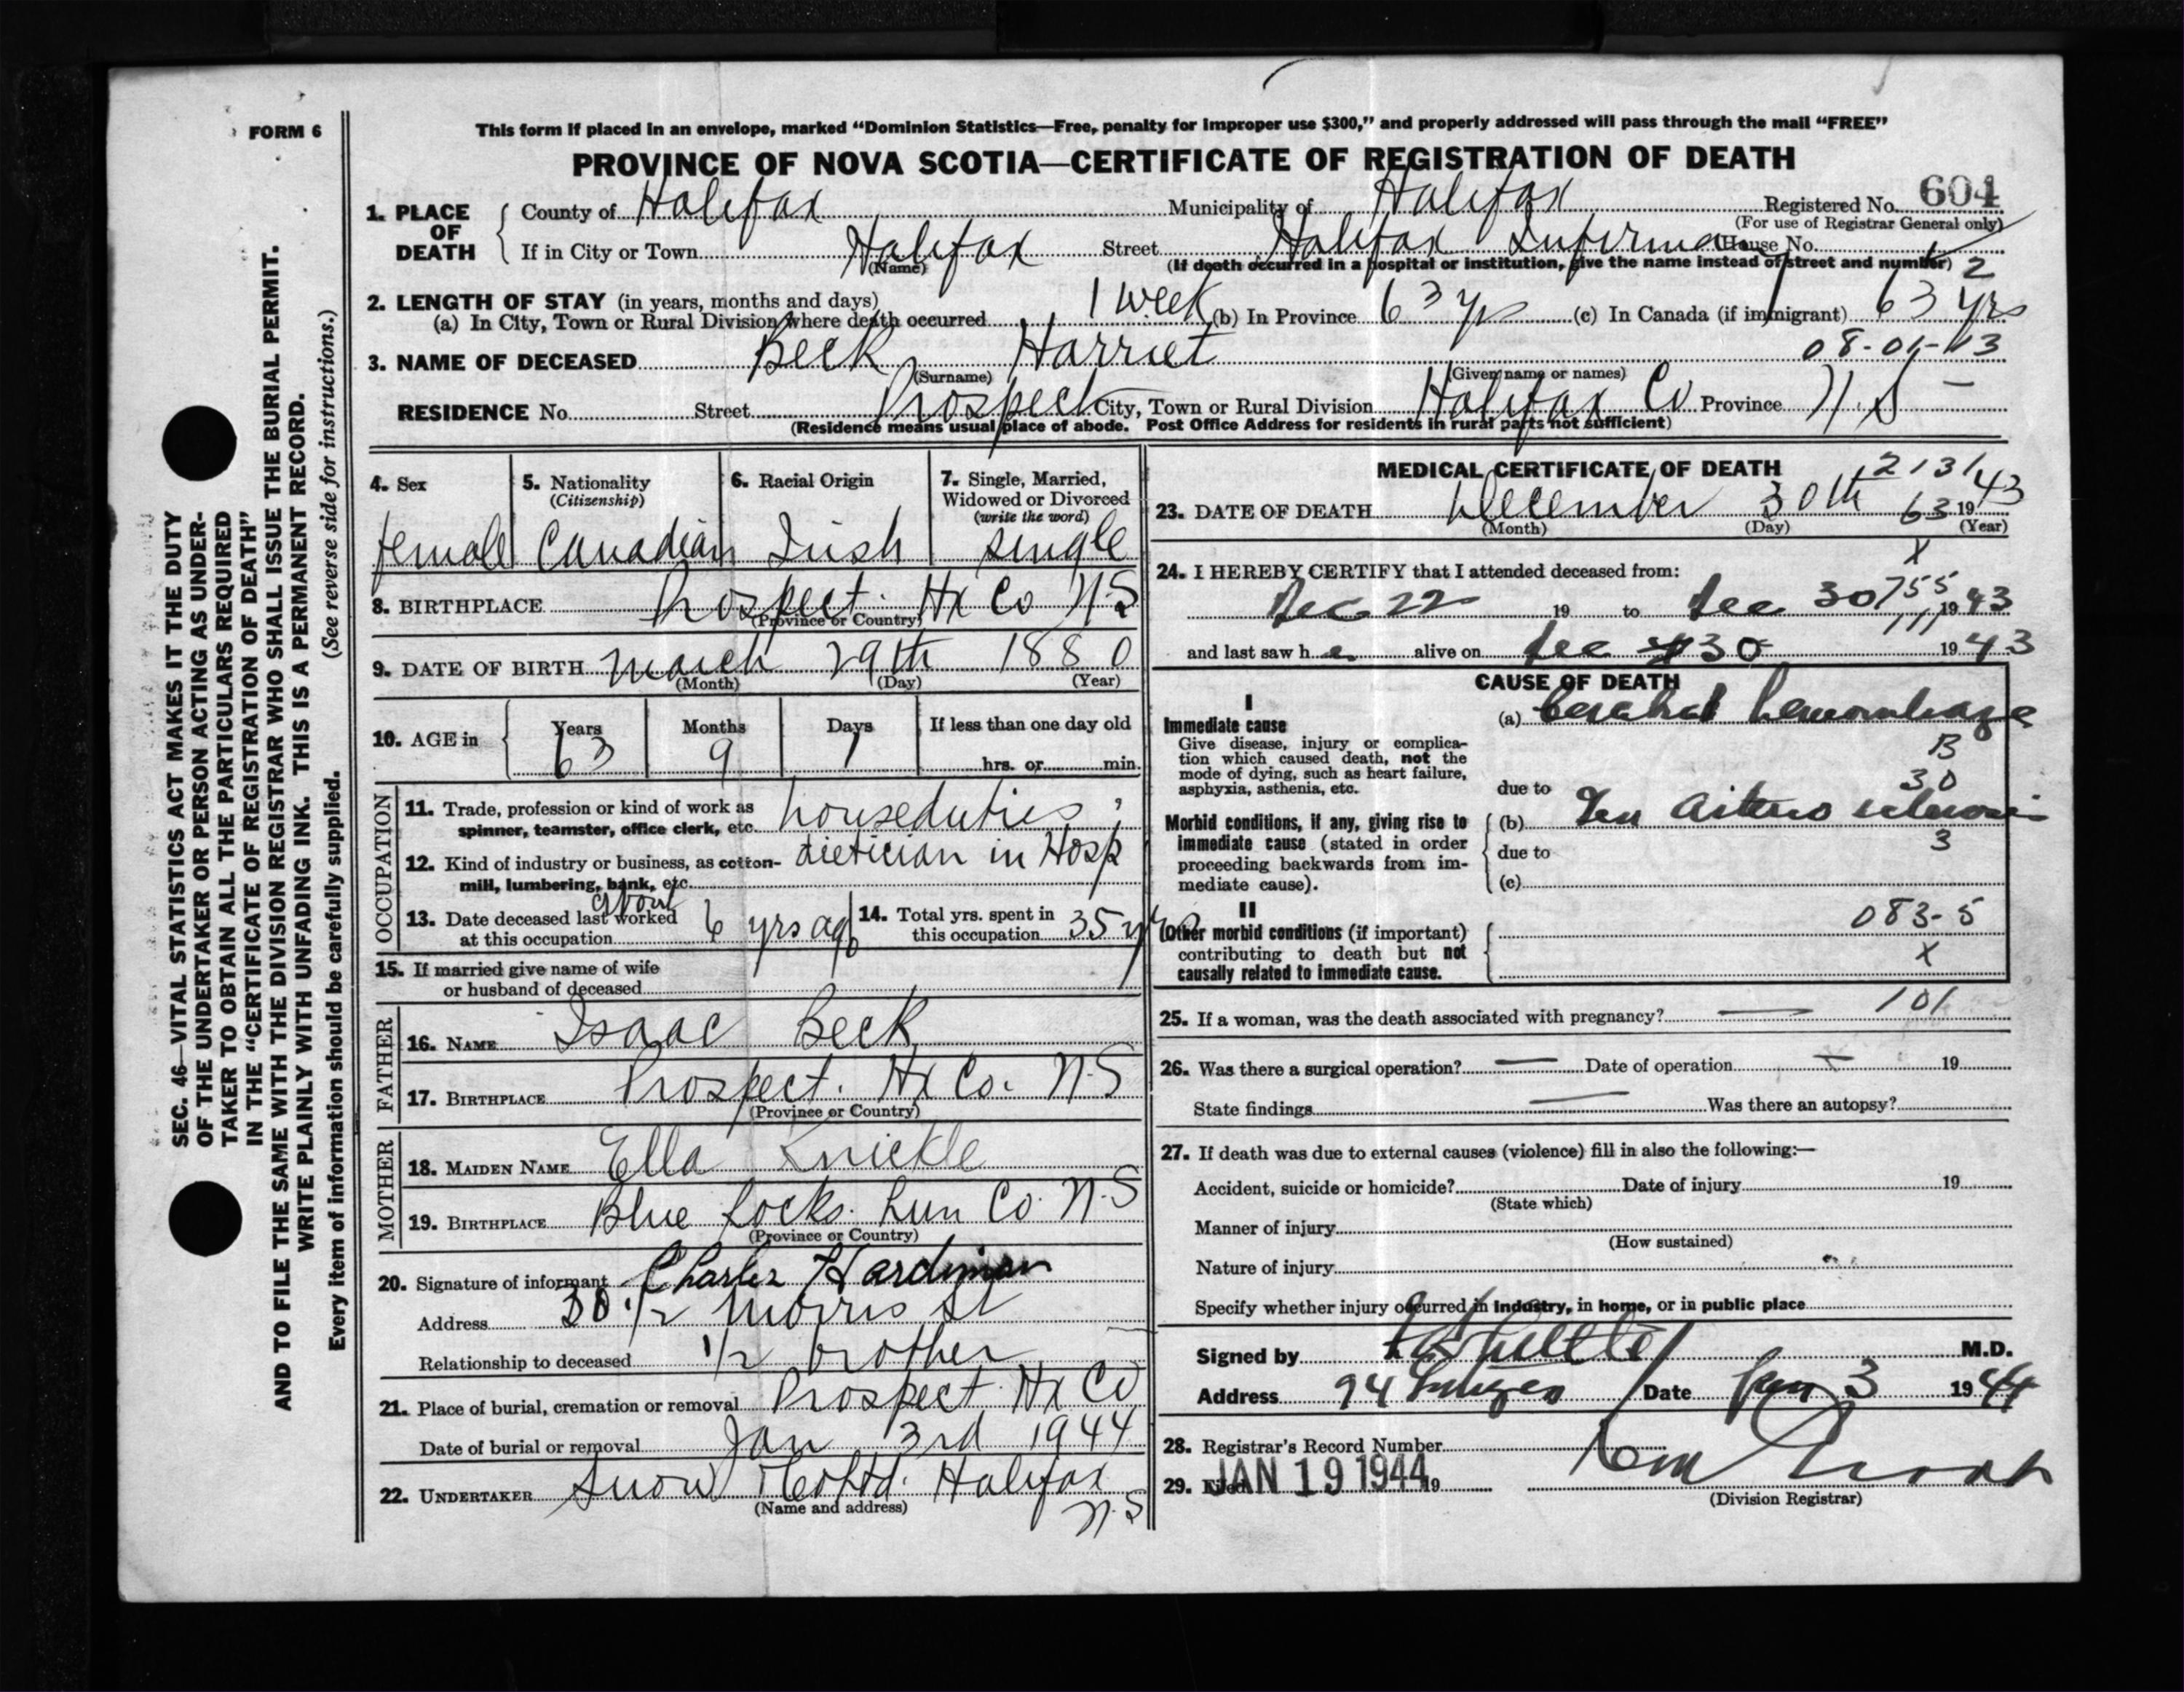 FORM 6
This form if placed in an envelope, marked “Dominion Statistics—Free, penalty for improper use $300,” and properly addressed will pass through the mail “FREE”
PROVINCE OF NOVA SCOTIA—CERTIFICATE OF REGISTRATION OF DEATH
1. PLACE OF DEATH County of Halifax Municipality of Halifax Registered No. 604
(For use of Registrar General only)
If in City or Town Halifax Street Halifax Infirmary House No.
(Name) (If death occurred in a hospital or institution, give the name instead of street and number)
12
2. LENGTH OF STAY (in years, months and days)
(a) In City, Town or Rural Division where death occurred 1 week (b) In Province 63 yrs (c) In Canada (if immigrant) 63 yrs
3. NAME OF DECEASED Beck, Harriet
(Surname) (Given name or names)
RESIDENCE No. Street Prospect City, Town or Rural Division Halifax Co Province N.S
(Residence means usual place of abode. Post Office Address for residents in rural parts not sufficient)
4. Sex
female
5. Nationality
(Citizenship)
Canadian
6. Racial Origin
Irish
7. Single, Married,
Widowed or Divorced
(write the word)
single
8. BIRTHPLACE Prospect. Hx Co N.S
(Province or Country)
9. DATE OF BIRTH March 29th 1880
(Month) (Day) (Year)
10. AGE in Years Months Days If less than one day old
63 9 1 hrs. or min.
OCCUPATION
11. Trade, profession or kind of work as
spinner, teamster, office clerk, etc. houseduties;
12. Kind of industry or business, as cotton-
mill, lumbering, bank, etc. dietician in Hosp
13. Date deceased last worked
at this occupation about 6 yrs ago
14. Total yrs. spent in
this occupation 35 yrs
15. If married give name of wife
or husband of deceased
FATHER
16. NAME Isaac Beck
17. BIRTHPLACE Prospect. Hx Co. N.S
(Province or Country)
MOTHER
18. MAIDEN NAME Ella Knickle
19. BIRTHPLACE Blue Rocks. Lun Co. N.S
(Province or Country)
20. Signature of informant Charles Hardiman
Address 30 1/2 Morris St
Relationship to deceased 1/2 brother
21. Place of burial, cremation or removal Prospect. Hx Co
Date of burial or removal Jan 3rd 1944
22. UNDERTAKER Snow & Co Ltd. Halifax
(Name and address) N.S
MEDICAL CERTIFICATE OF DEATH
12131
23. DATE OF DEATH December 30th 63 1943
(Month) (Day) (Year)
X
24. I HEREBY CERTIFY that I attended deceased from:
Dec 22 19 to Dec 30 1943
755
111
and last saw h er alive on Dec 30 1943
CAUSE OF DEATH
I
Immediate cause
Give disease, injury or complica-
tion which caused death, not the
mode of dying, such as heart failure,
asphyxia, asthenia, etc.
(a) Cerebral hemorrhage
B
30
due to
Morbid conditions, if any, giving rise to
immediate cause (stated in order
proceeding backwards from im-
mediate cause).
(b) Gen Arterio sclerosis
3
due to
(c)
II
Other morbid conditions (if important)
contributing to death but not
causally related to immediate cause.
083-5
X
101
25. If a woman, was the death associated with pregnancy? —
26. Was there a surgical operation? — Date of operation — 19
State findings — Was there an autopsy?
27. If death was due to external causes (violence) fill in also the following:—
Accident, suicide or homicide? Date of injury 19
(State which)
Manner of injury
(How sustained)
Nature of injury
Specify whether injury occurred in industry, in home, or in public place
Signed by M.D.
Address 94 Date Jan 3 1944
28. Registrar's Record Number
29. Filed JAN 19 1944 19
(Division Registrar)
SEC. 46—VITAL STATISTICS ACT MAKES IT THE DUTY
OF THE UNDERTAKER OR PERSON ACTING AS UNDER-
TAKER TO OBTAIN ALL THE PARTICULARS REQUIRED
IN THE “CERTIFICATE OF REGISTRATION OF DEATH”
AND TO FILE THE SAME WITH THE DIVISION REGISTRAR WHO SHALL ISSUE THE BURIAL PERMIT.
WRITE PLAINLY WITH UNFADING INK. THIS IS A PERMANENT RECORD.
Every item of information should be carefully supplied. (See reverse side for instructions.)